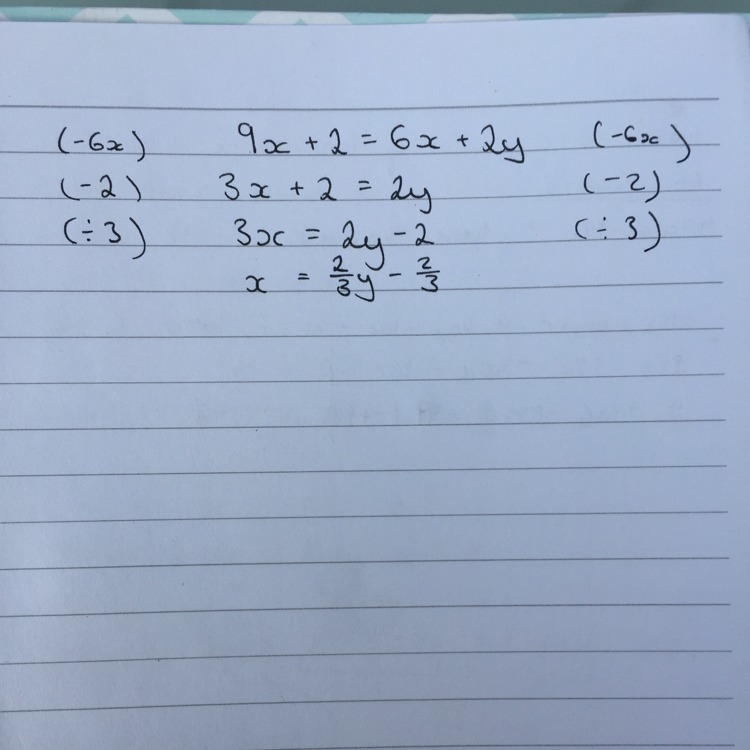 (-6x) 9x + 2 = 6x + 2y (-6x)
(-2) 3x + 2 = 2y (-2)
(÷3) 3x = 2y - 2 (÷3)
x = 2/3y - 2/3